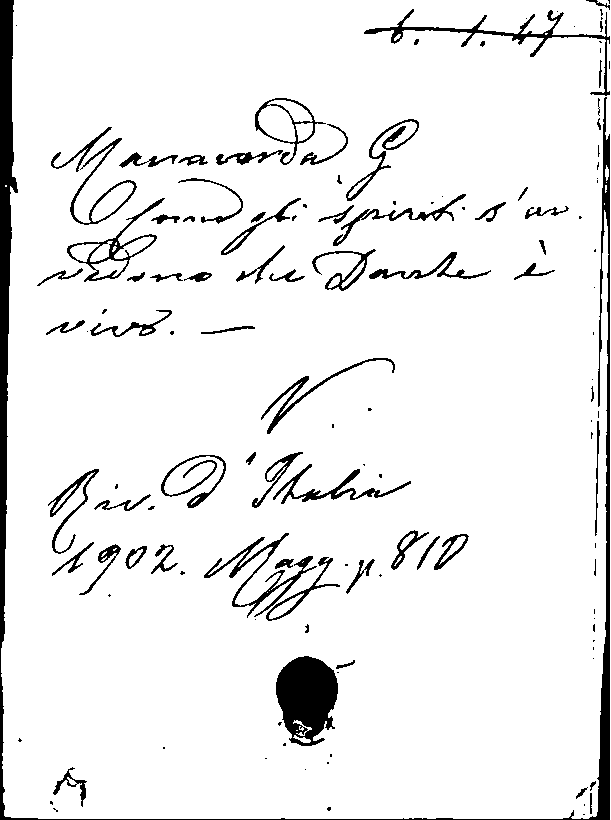 6. 1. 47
Manacorda G
Come gli spiriti s'av-
vedono che Dante è
vivo. —
V.
Riv. d'Italia
1902. Magg. p. 810